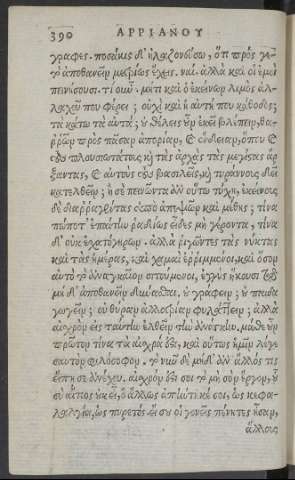 390 ΑΡΡΙΑΝΟΥ
γραφες. ποσάκις δ' ἠλαζονεύσω, ὅτι πρὸς γε
τὸ ἀποθανεῖν μετρίως ἔχεις. ναί. ἀλλὰ καὶ οἱ ἐμοὶ
πεινήσουσι. τί οὖν. μή τι καὶ ὁ ἐκείνων λιμὸς ἀλ-
λαχοῦ που φέρει; οὐχὶ καὶ ἡ αὐτή που κάθοδος;
τὰ κάτω τὰ αὐτά; οὐ θέλεις οὖν ἐκεῖ βλέπειν, θαρ-
ρῶν πρὸς πᾶσαν ἀπορίαν, καὶ ἔνδειαν, ὅπου καὶ
τοὺς πλουσιωτάτους, καὶ τὰς ἀρχὰς τὰς μεγίστας ἄρ
ξαντας, καὶ αὐτοὺς τοὺς βασιλεῖς, καὶ τυράννους δεῖ
κατελθεῖν; ἢ σὲ πεινῶντα ἂν οὕτω τύχῃ, ἐκείνους
δὲ διαρραγέντας ὑπὸ ἀπεψιῶν καὶ μέθης; τίνα
πώποτ' ἐπαίτην ῥᾳδίως εἶδες μὴ γέροντα, τίνα
δ' οὐκ ἐσχατόγηρων. ἀλλὰ ῥιγῶντες τὰς νύκτας
καὶ τὰς ἡμέρας, καὶ χαμαὶ ἐρριμμένοι, καὶ ὅσον
αὐτὸ τὸ ἀναγκαῖον σιτούμενοι, ἐγγὺς ἥκουσι τοῦ
μὴ δ' ἀποθανεῖν δύνασθαι. οὐ γράφειν; οὐ παιδα
γωγεῖν; οὐ θύραν ἀλλοτρίαν φυλάττειν; ἀλλὰ
αἰσχρὸν εἰς ταύτην ἐλθεῖν τὴν ἀνάγκην. μάθε οὖν
πρῶτον τίνα τὰ αἰσχρά ἐστι, καὶ οὕτως ἡμῖν λέγε
σαυτὸν φιλόσοφον. τὸ νῦν δὲ μὴ δ' ἂν ἄλλός τις
εἴπῃ σε ἀνέχου. αἰσχρόν ἐστί σοι τὸ μὴ σὸν ἔργον, οὗ
σὺ αἴτιος οὐκ εἶ, ὃ ἄλλως ἀπήντησέ σοι, ὡς κεφα-
λαλγία, ὡς πυρετός; εἴ σου οἱ γονεῖς πένητες ἦσαν,
ἄλλους